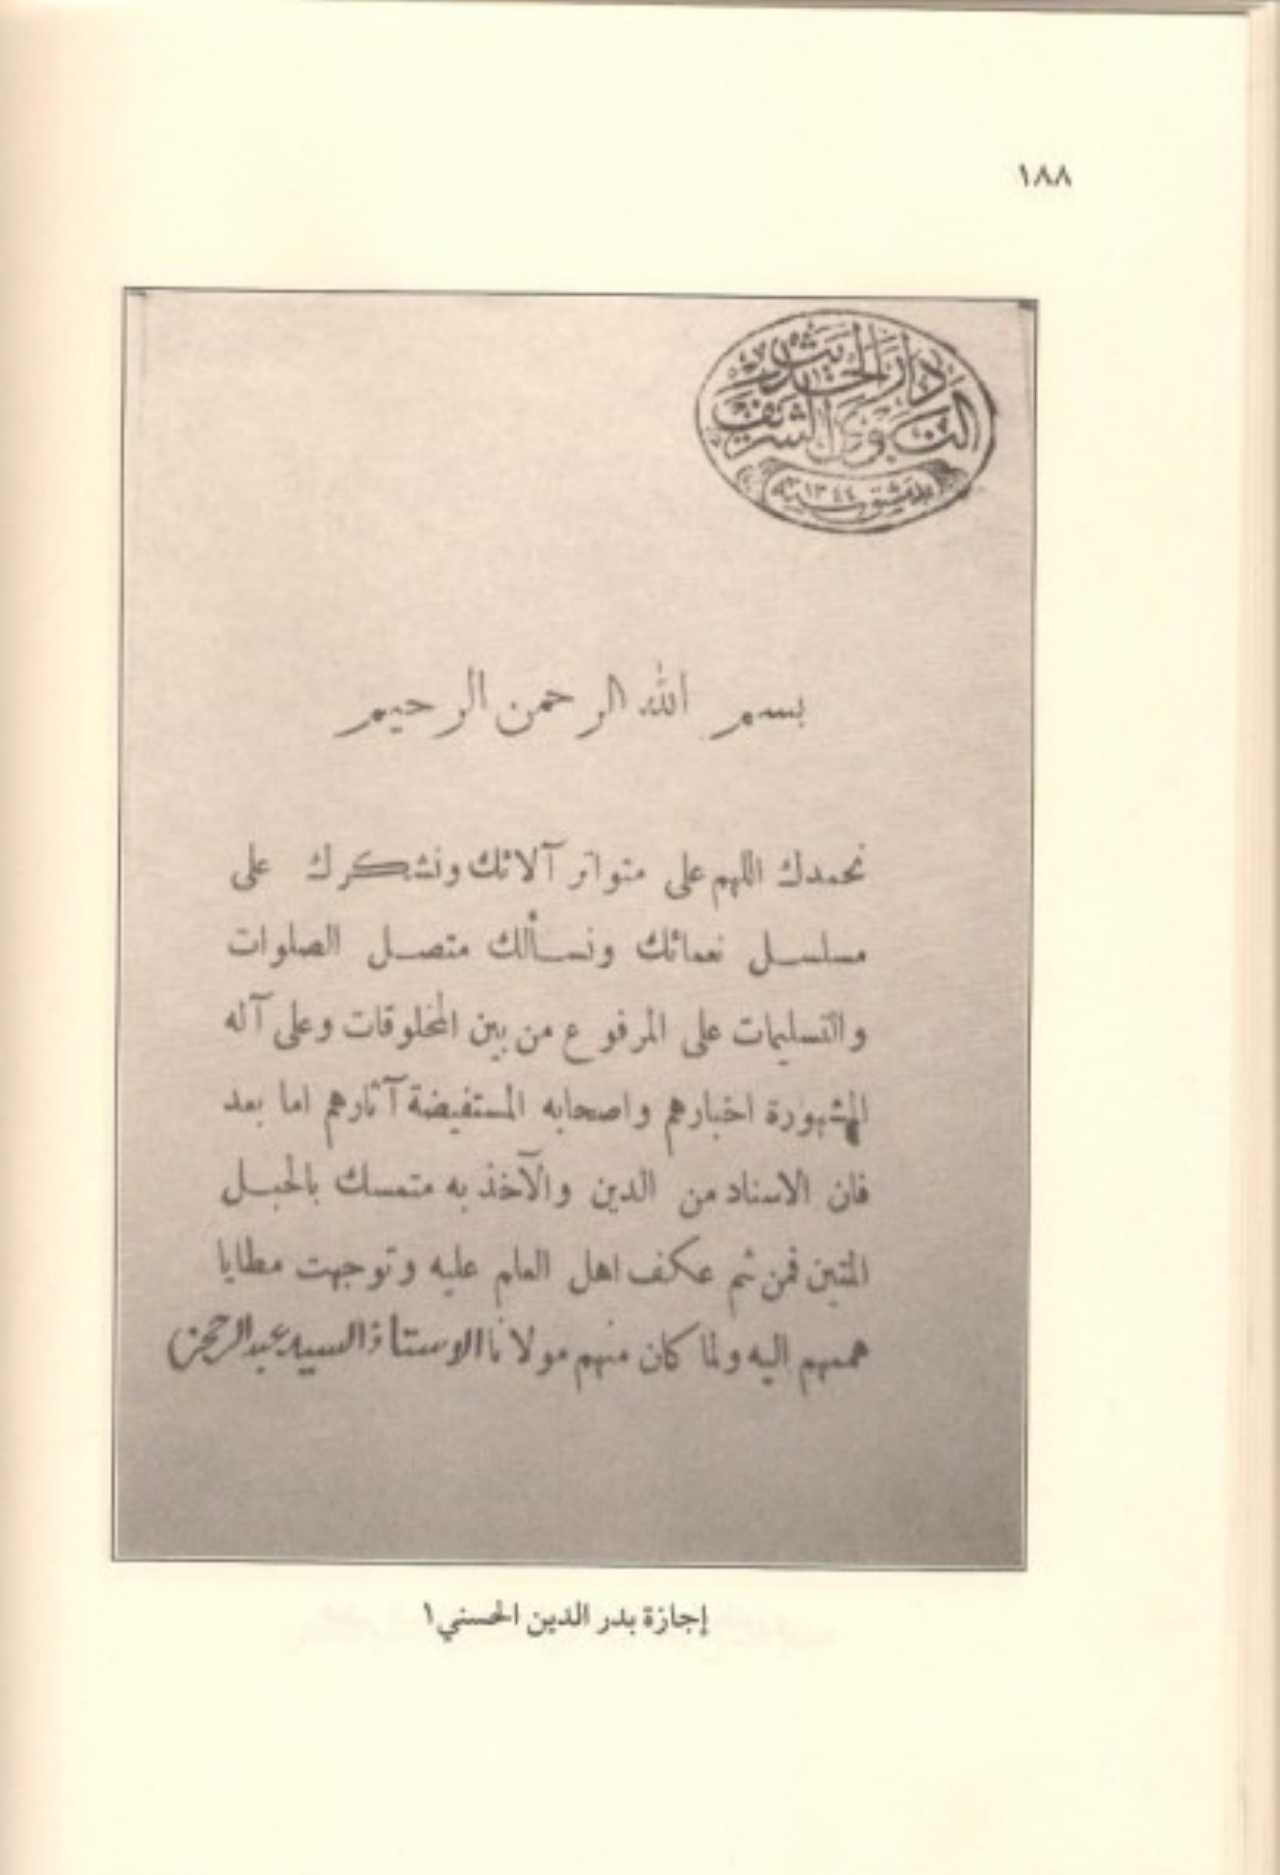 ١٨٨
دار الحديث
النبوي الشريف
بدمشق سنة ١٣٤٤
بسم الله الرحمن الرحيم
نحمدك اللهم على متواتر آلائك ونشكرك على
مسلسل نعمائك ونسألك متصل الصلوات
والتسليمات على المرفوع من بين المخلوقات وعلى آله
المشهورة اخبارهم واصحابه المستفيضة آثارهم اما بعد
فان الاسناد من الدين والآخذ به متمسك بالحبل
المتين فمن ثم عكف اهل العلم عليه وتوجهت مطايا
هممهم اليه ولما كان منهم مولانا الاستاذ السيد عبد الرحمن
إجازة بدر الدين الحسني ١